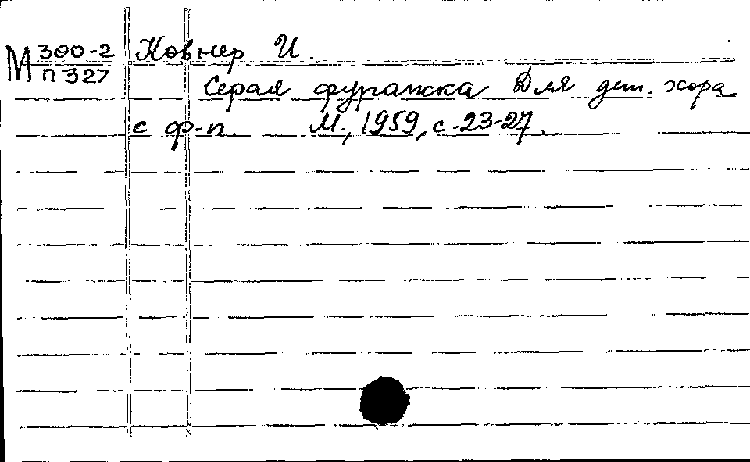 М 300-2 Ковнер И.
П 327
Серая фуражка Для дет. хора
с ф-п. М., 1959, с. 23-27.